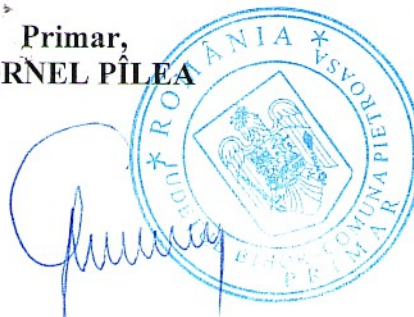 Primar,
RNEL PÎLEA
* ROMÂNIA *
JUDEȚUL BIHOR COMUNA PIETROASA
PRIMAR